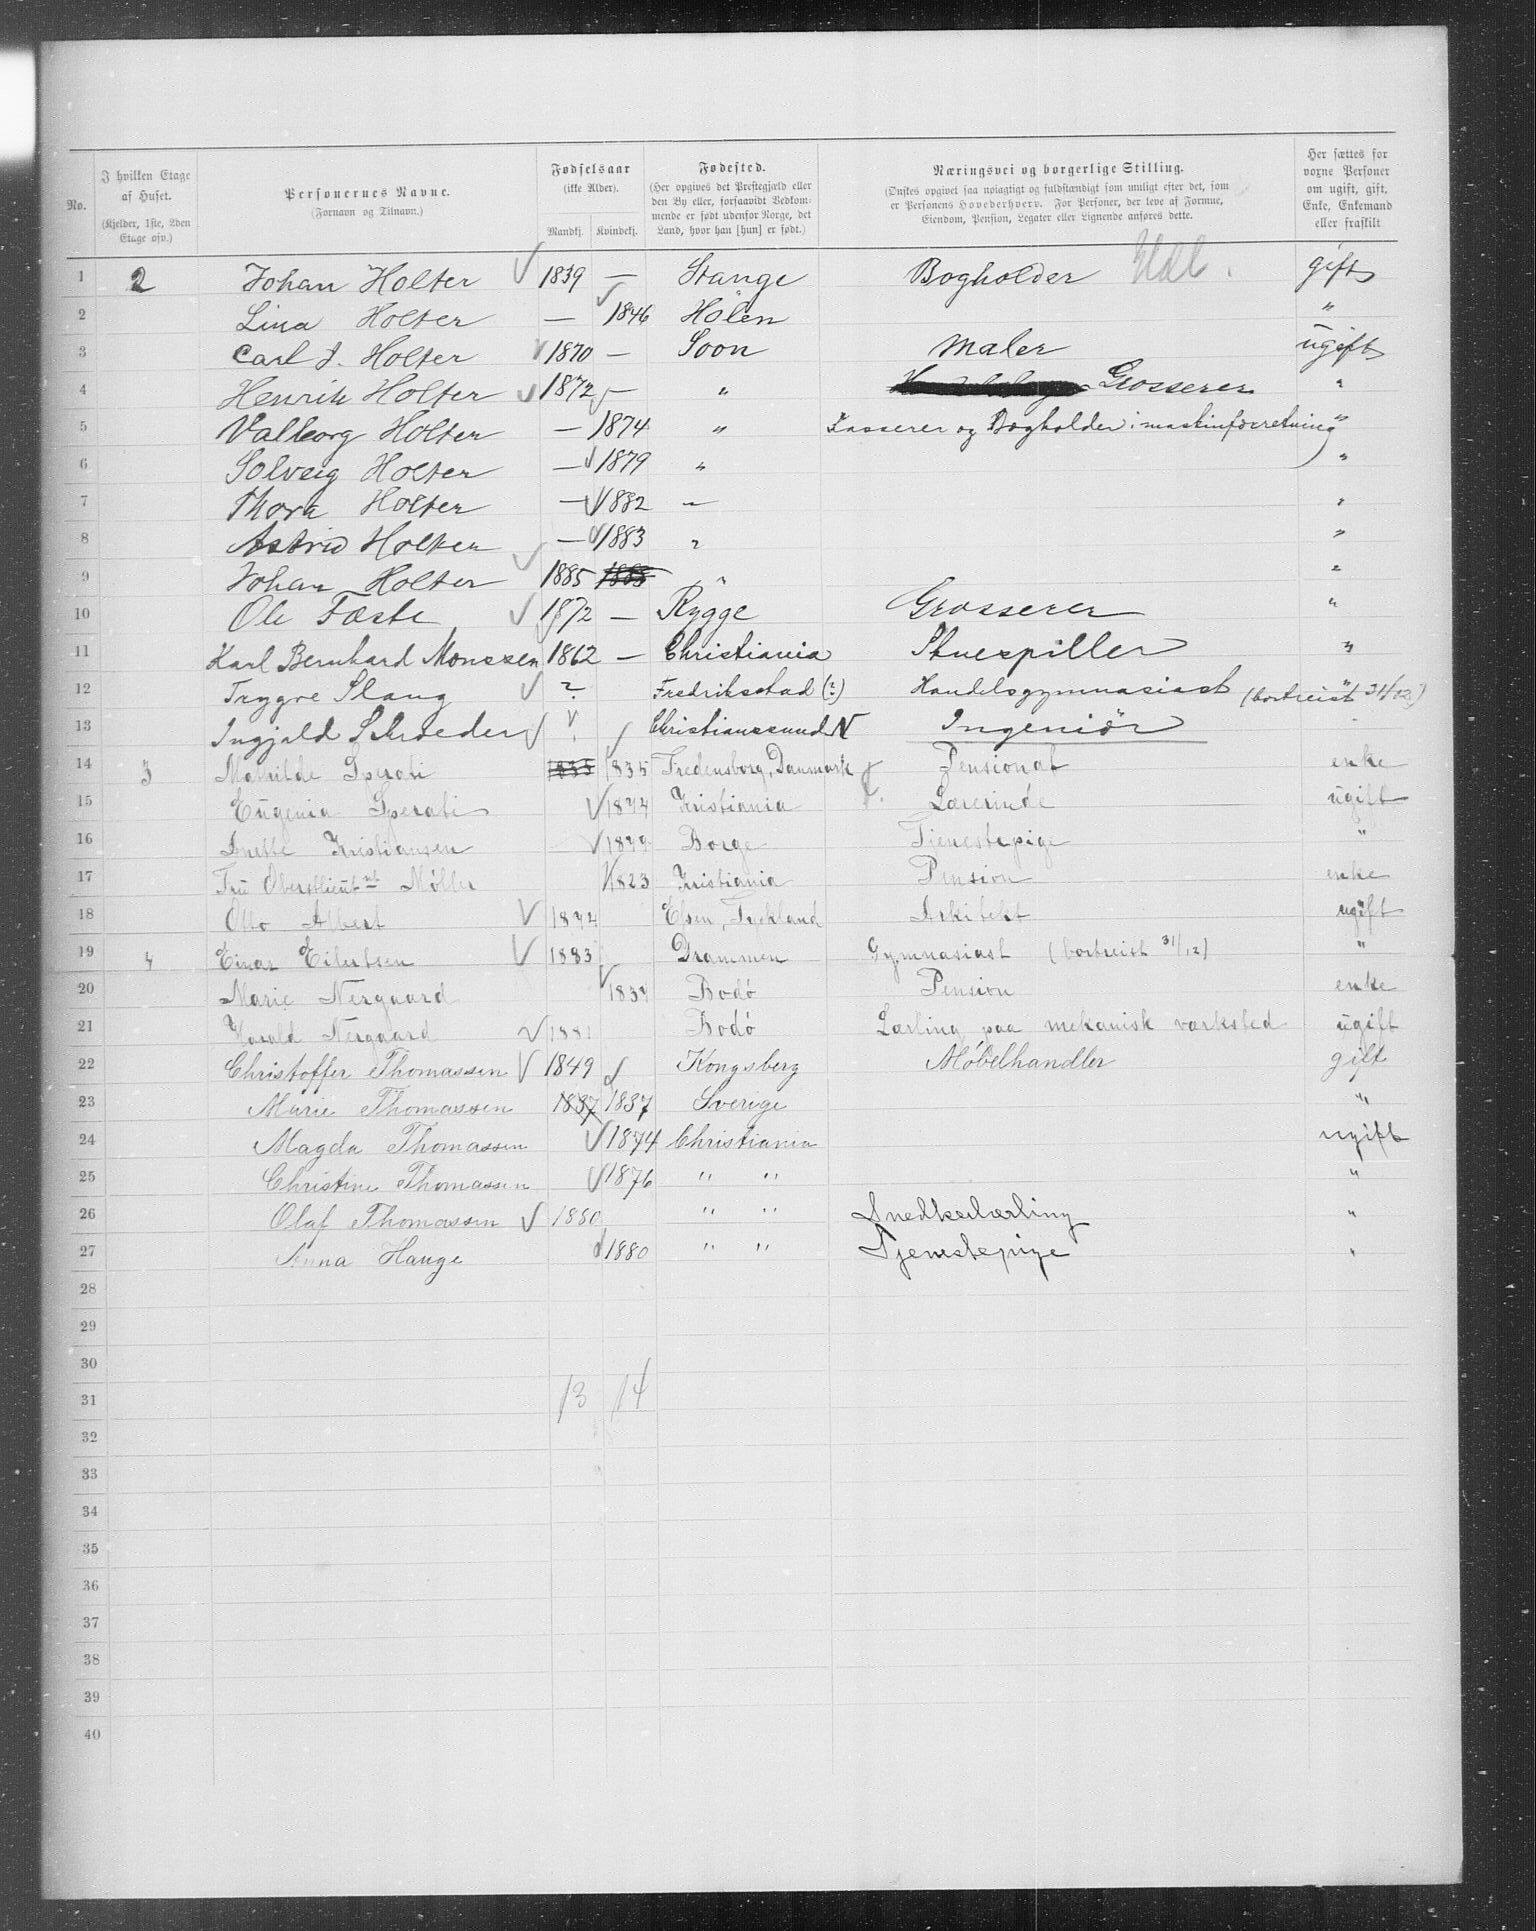 No. | I hvilken Etage af Huset. (Kjelder, 1ste, 2den Etage osv.) | Personernes Navne. (Fornavn og Tilnavn.) | Fødselsaar (ikke Alder). Mandkj. Kvindekj. | Fødested. (Her opgives det Prestegjæld eller den By eller, forsaavidt Vedkommende er født udenfor Norge, det Land, hvor han [hun] er født.) | Næringsvei og borgerlige Stilling. (Ønskes opgivet saa nøiagtigt og fuldstændigt som muligt efter det, som er Personens Hovederhverv. For Personer, der leve af Formue, Eiendom, Pension, Legater eller Lignende anføres dette. | Her sættes for voxne Personer om ugift, gift, Enke, Enkemand eller fraskilt
1 2 Johan Holter 1839 — Stange Bogholder gift
2 Lina Holter — 1846 Hölen "
3 Carl J. Holter 1870 — Soon Maler ugift
4 Henrik Holter 1872 — " Grosserer "
5 Valborg Holter — 1874 " Kasserer og Bogholder i maskinforretning "
6 Solveig Holter — 1879 " "
7 Thora Holter — 1882 " "
8 Astrid Holter — 1883 " "
9 Johan Holter 1885 1885 " "
10 Ole Fæste 1872 — Rygge Grosserer "
11 Karl Bernhard Monssen 1862 — Christiania Skuespiller "
12 Trygve Stang ? Fredriksstad (?) Handelsgymnasiast (bortreist 31/12) "
13 Ingjald Schrøeder ? Christianssund N Ingeniör
14 3 Mathilde Sperati 1835 1835 Fredensborg, Danmark Pensionat enke
15 Eugenia Sperati 1874 Kristiania Lærerinde ugift
16 Kristiansen 1879 Borge Tjenestepige "
17 Fru Oberstlieutnt Møller 1823 Kristiania Pension enke
18 Otto Albert 1872 Arkitekt ugift
19 4 Einar Eilertsen 1883 Drammen Gymnasiast (bortreist 31/12) "
20 Marie Nergaard 1837 Bodó Pension enke
21 Harald Nergaard 1881 Bodó Lærling paa mekanisk værksted ugift
22 Christoffer Thomassen 1849 Kongsberg Möbelhandler gift
23 Marie Thomassen 1837 1837 Sverige "
24 Magda Thomassen 1874 Christiania ugift
25 Christine Thomassen 1876 " " "
26 Olaf Thomassen 1880 " " Snedkerlærling "
27 Anna Hauge 1880 " " Tjenestepige "
28
29
30
31 13 14
32
33
34
35
36
37
38
39
40